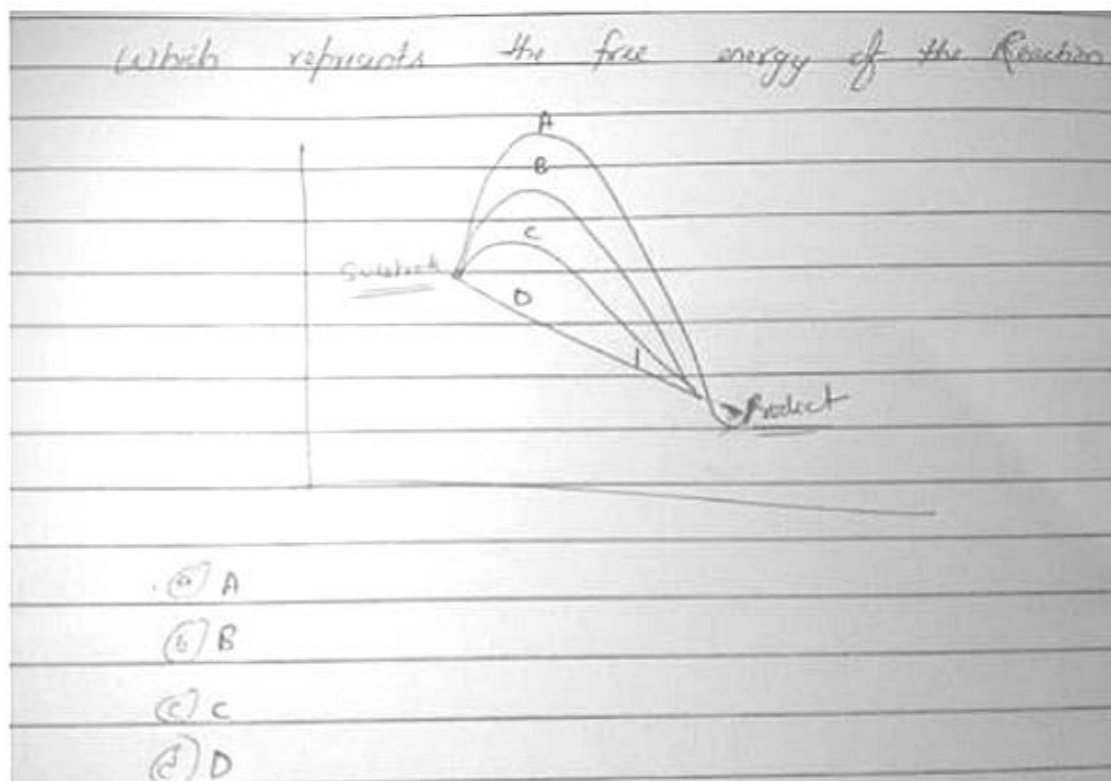 Which represents the free energy of the Reaction
A
B
C
Substrate
D
Product
(a) A
(b) B
(c) C
(d) D